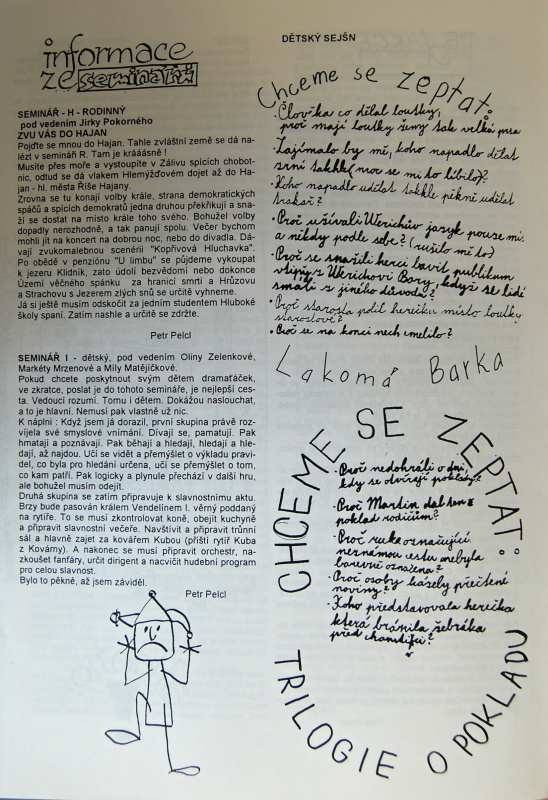 informace
ze semináří
SEMINÁŘ - H - RODINNÝ
pod vedením Jirky Pokorného
ZVU VÁS DO HAJAN
Pojďte se mnou do Hajan. Tahle zvláštní země se dá na-
lézt v semináři R. Tam je kráááásně !
Musíte přes moře a vystoupíte v Zálivu spících chobot-
nic, odtud se dá vlakem Hlemýžďovem dojet až do Ha-
jan - hl. města Říše Hajany.
Zrovna se tu konají volby krále, strana demokratických
spáčů a spících demokratů jedna druhou překřikují a sna-
ží se dostat na místo krále toho svého. Bohužel volby
dopadly nerozhodně, a tak panují spolu. Večer bychom
mohli jít na koncert na dobrou noc, nebo do divadla. Dá-
vají zvukomalebnou scenérii "Kopřivová Hluchavka".
Po obědě v penziónu "U limbu" se půjdeme vykoupat
k jezeru Klidník, zato údolí bezvědomí nebo dokonce
Území věčného spánku za hranicí smrti a Hrůzovu
a Strachovu s Jezerem zlých snů se určitě vyhneme.
Já si ještě musím odskočit za jedním studentem Hluboké
školy spaní. Zatím nashle a určitě se zdržte.
Petr Pelcl
SEMINÁŘ I - dětský, pod vedením Oliny Zelenkové,
Markéty Mrzenové a Míly Matějíčkové.
Pokud chcete poskytnout svým dětem dramaťáček,
ve zkratce, poslat je do tohoto semináře, je nejlepší ces-
ta. Vedoucí rozumí. Tomu i dětem. Dokážou naslouchat,
a to je hlavní. Nemusí pak vlastně už nic.
K náplni : Když jsem já dorazil, první skupina právě roz-
víjela své smyslové vnímání. Dívají se, pamatují. Pak
hmatají a poznávají. Pak běhají a hledají, hledají a hle-
dají, až najdou. Učí se vidět a přemýšlet o výkladu pravi-
del, co byla pro hledání určena, učí se přemýšlet o tom,
co kam patří. Pak logicky a plynule přechází v další hru,
ale bohužel musím odejít.
Druhá skupina se zatím připravuje k slavnostnímu aktu.
Brzy bude pasován králem Vendelínem I. věrný poddaný
na rytíře. To se musí zkontrolovat koně, obejít kuchyně
a připravit slavnostní večeře. Navštívit a připravit trůnní
sál a hlavně zajet za kovářem Kubou (příští rytíř Kuba
z Kovárny). A nakonec se musí připravit orchestr, na-
zkoušet fanfáry, určit dirigent a nacvičit hudební program
pro celou slavnost.
Bylo to pěkné, až jsem záviděl.
Petr Pelcl
DĚTSKÝ SEJŠN
Chceme se zeptat:
• Člověka co dělal loutky,
proč mají loutky ženy tak velké prsa
• Zajímalo by mě, koho napadlo dělat
srní takhle, moc se mi to líbilo?
• Koho napadlo udělat takhle pěkně udělat
trakař?
• Proč užívali Werichův jazyk pouze mi.
a nikdy podle sebe? (rušilo mě to)
• Proč se snažili herci bavit publikum
vtipy z Ukrichovi Bory, když se lidé
smáli z jiného důvodu?
• Proč starosta políbil herečku místo loutky
starostové?
• Proč se na konci nech umelilo?
Lakomá Barka
CHCEME SE ZEPTAT:
• Proč nedohráli o dni,
kdy se otvírají poklady?
• Proč Martin dal ten
poklad rodičům?
• Proč ruka označující
neznámou cestu nebyla
barevně označena?
• Proč osoby házely přečtené
noviny?
• Koho představovala herečka
která bránila žebráka
před
TRILOGIE O POKLADU